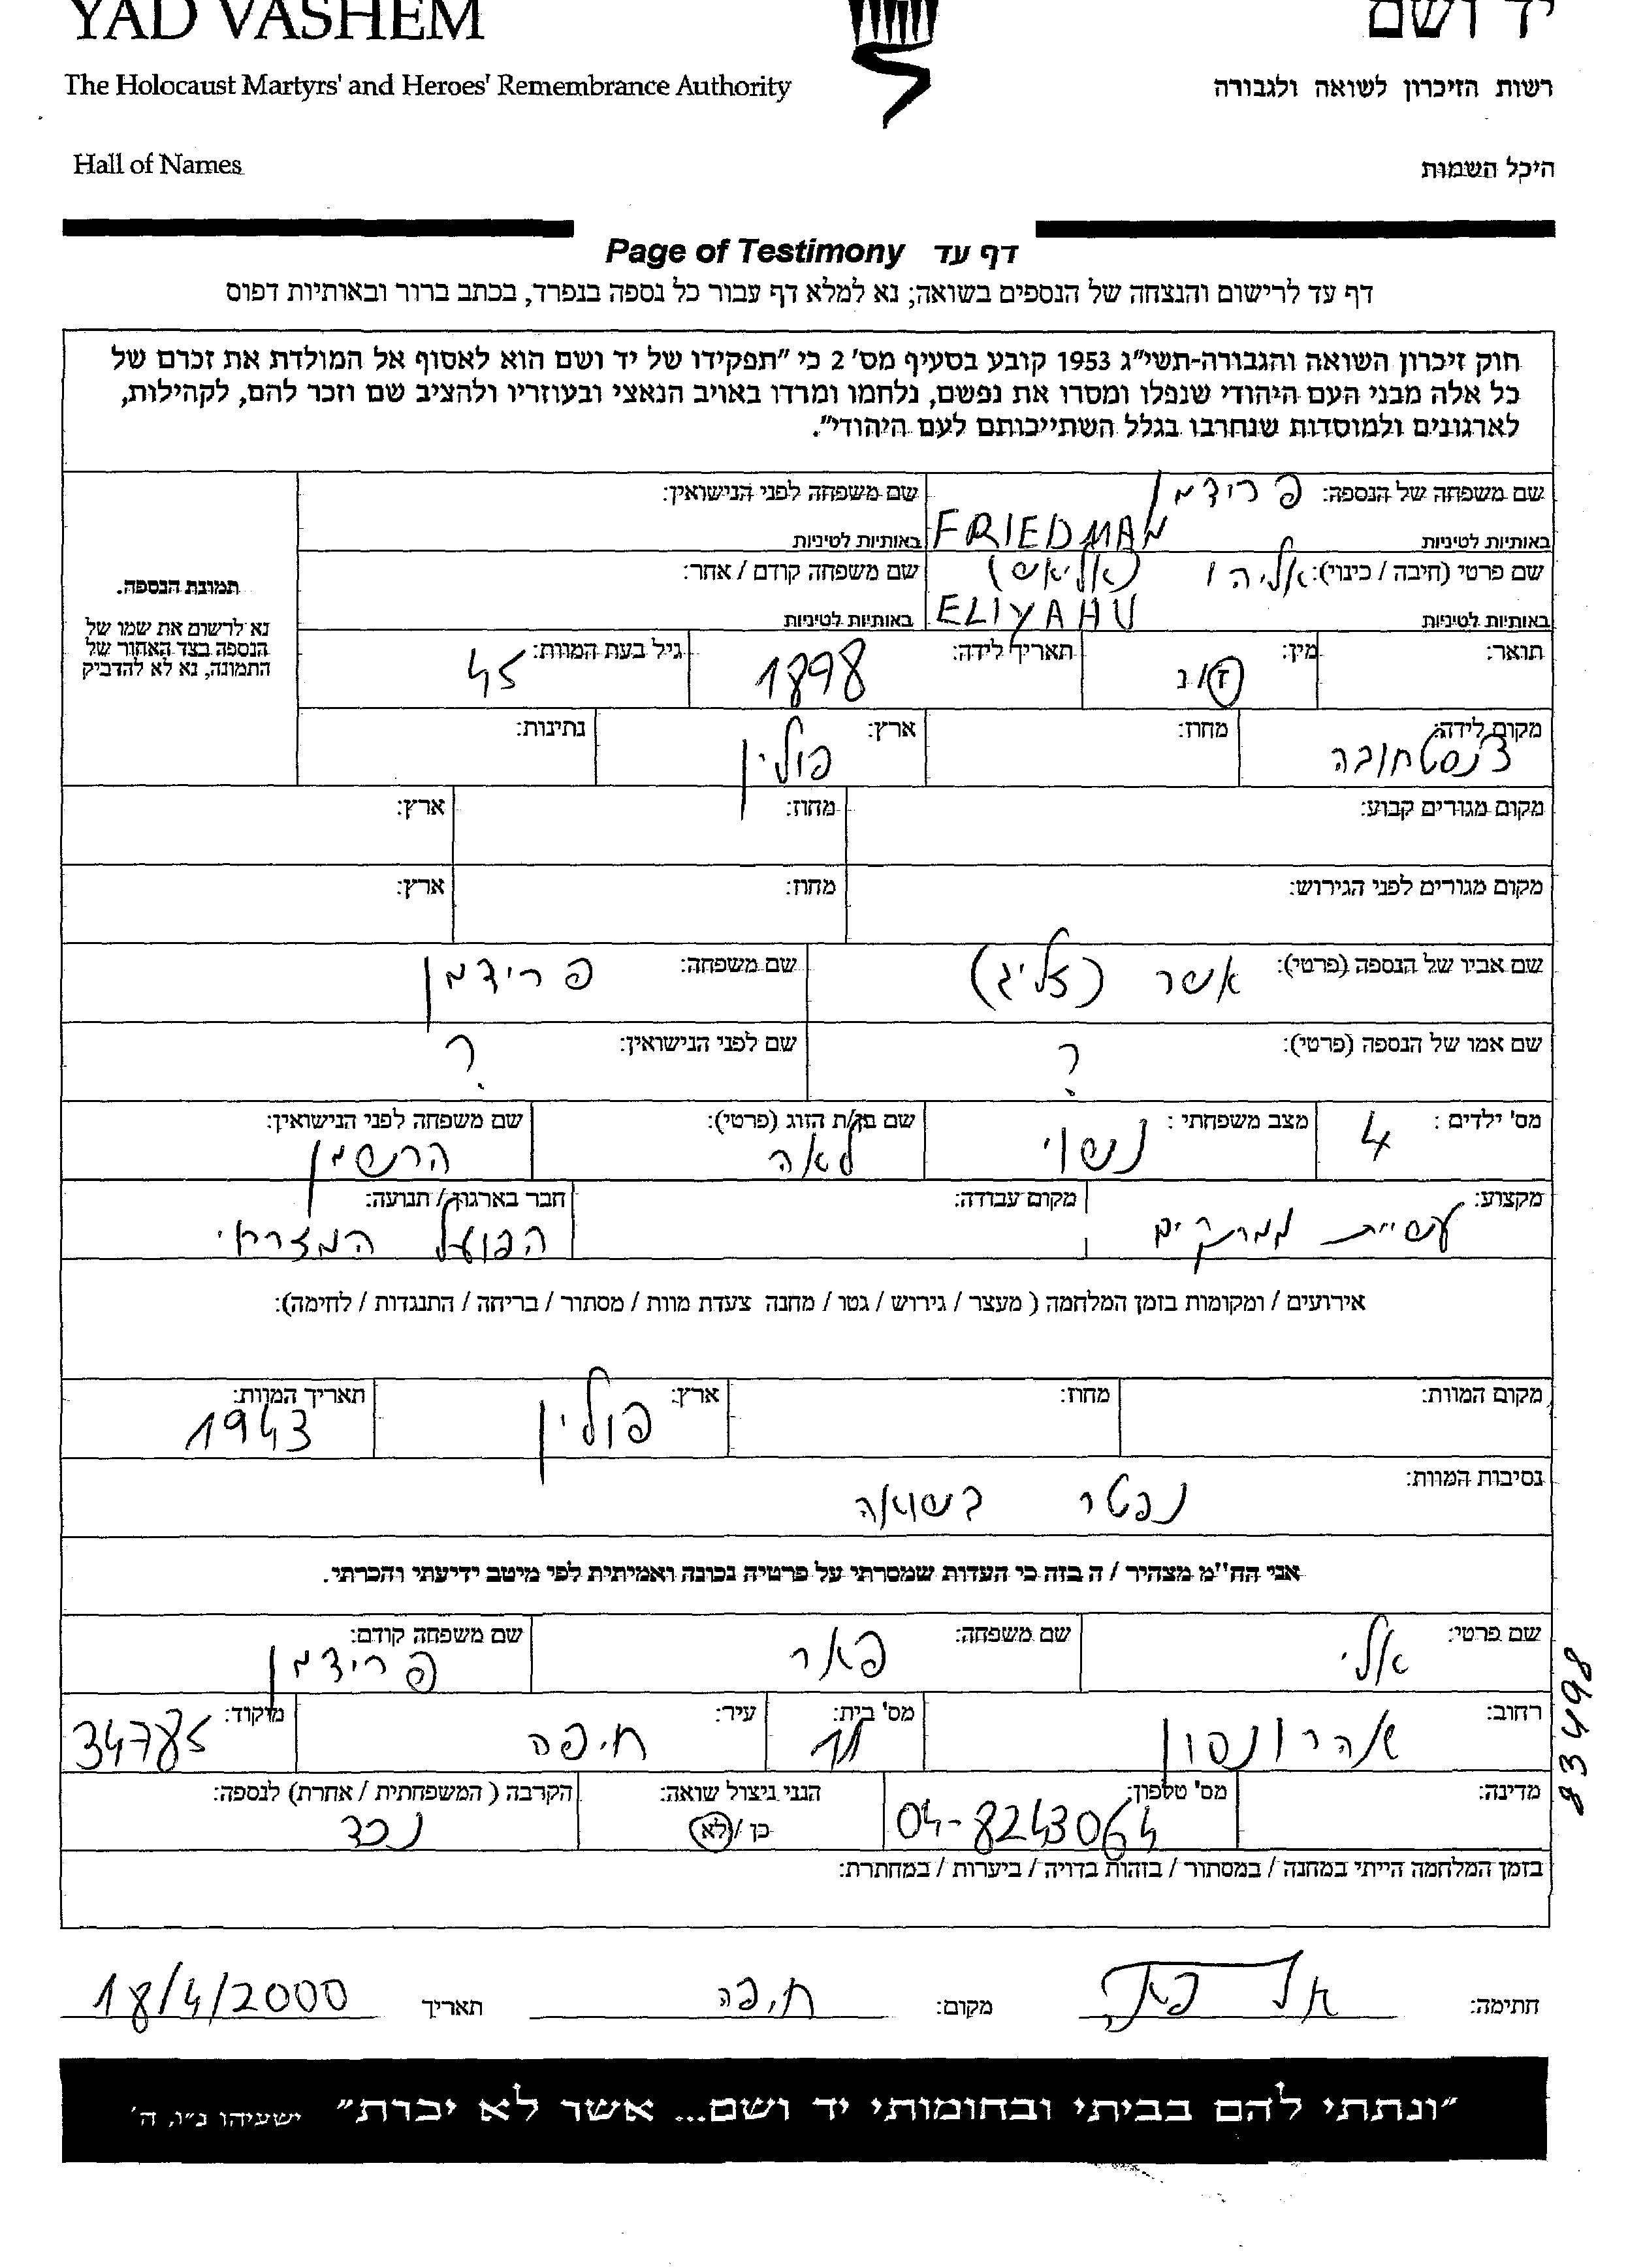 YAD VASHEM יד ושם
The Holocaust Martyrs' and Heroes' Remembrance Authority רשות הזיכרון לשואה ולגבורה
Hall of Names היכל השמות
Page of Testimony דף עד
דף עד לרישום והנצחה של הנספים בשואה; נא למלא דף עבור כל נספה בנפרד, בכתב ברור ובאותיות דפוס
חוק זיכרון השואה והגבורה-תשי"ג 1953 קובע בסעיף מס' 2 כי "תפקידו של יד ושם הוא לאסוף אל המולדת את זכרם של
כל אלה מבני העם היהודי שנפלו ומסרו את נפשם, נלחמו ומרדו באויב הנאצי ובעוזריו ולהציב שם וזכר להם, לקהילות,
לארגונים ולמוסדות שנחרבו בגלל השתייכותם לעם היהודי".
שם משפחה של הנספה: פרידמן שם משפחה לפני הנישואין:
באותיות לטיניות FRIEDMAN באותיות לטיניות
שם פרטי (חיבה / כינוי): אליהו (אליאש) שם משפחה קודם / אחר:
באותיות לטיניות ELIYAHU באותיות לטיניות
תמונת הנספה.
נא לרשום את שמו של
הנספה בצד האחור של
התמונה, נא לא להדביק
תואר: מין: ז/נ תאריך לידה: 1898 גיל בעת המוות: 45
מקום לידה: צ'נסטחובה מחוז: ארץ: פולין נתינות:
מקום מגורים קבוע: מחוז: ארץ:
מקום מגורים לפני הגירוש: מחוז: ארץ:
שם אביו של הנספה (פרטי): אשר (זליג) שם משפחה: פרידמן
שם אמו של הנספה (פרטי): ? שם לפני הנישואין: ?
מס' ילדים : 4 מצב משפחתי : נשוי שם בן/ת הזוג (פרטי): לאה שם משפחה לפני הנישואין: הרשמן
מקצוע: עשיית ממרקים מקום עבודה: חבר בארגון / תנועה: הפועל המזרחי
אירועים / ומקומות בזמן המלחמה ( מעצר / גירוש / גטו / מחנה צעדת מוות / מסתור / בריחה / התנגדות / לחימה):
מקום המוות: מחוז: ארץ: פולין תאריך המוות: 1943
נסיבות המוות: נפטר בשואה
אני הח"מ מצהיר / ה בזה כי העדות שמסרתי על פרטיה נכונה ואמיתית לפי מיטב ידיעתי והכרתי.
שם פרטי: אלי שם משפחה: פאר שם משפחה קודם: פרידמן
רחוב: אהרונסון מס' בית: 11 עיר: חיפה מיקוד: 34785
מדינה: מס' טלפון: 04-8243064 הנני ניצול שואה: כן / לא הקרבה ( המשפחתית / אחרת) לנספה: נכד
בזמן המלחמה הייתי במחנה / במסתור / בזהות בדויה / ביערות / במחתרת:
83498
חתימה: אלי פאר מקום: חיפה תאריך 18/4/2000
"ונתתי להם בביתי ובחומותי יד ושם... אשר לא יכרת" ישעיהו נ"ו, ה'